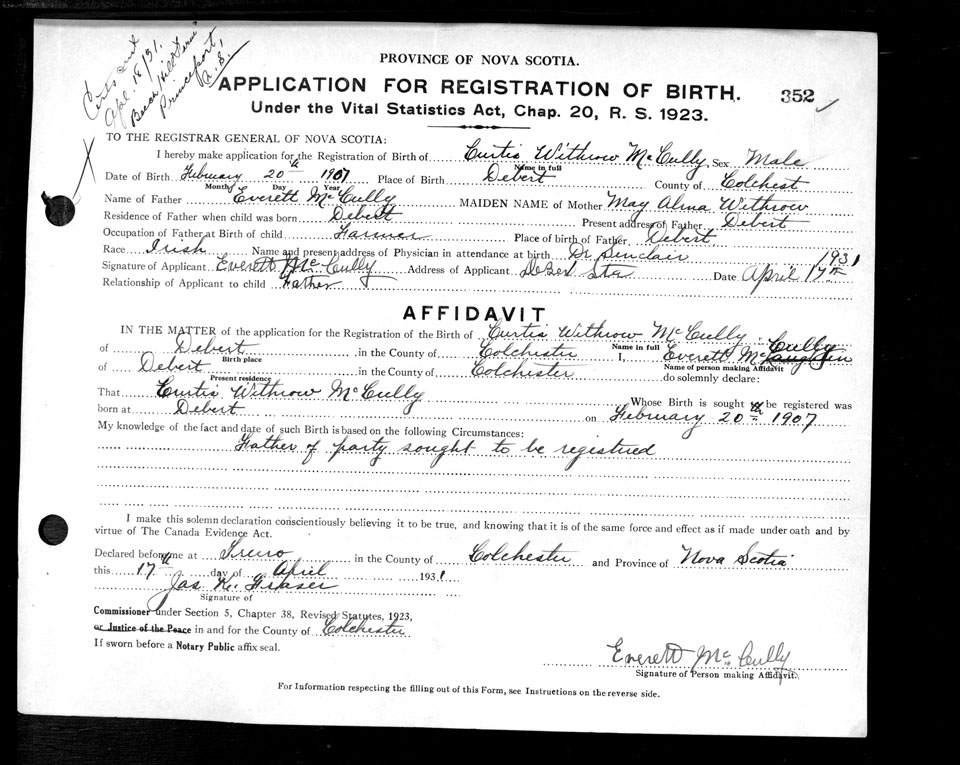 Certs sent
Apl. 18/31.
Beech Hill Farm
Princeport,
N.S.!
PROVINCE OF NOVA SCOTIA.
APPLICATION FOR REGISTRATION OF BIRTH. 352 ✓
Under the Vital Statistics Act, Chap. 20, R. S. 1923.
TO THE REGISTRAR GENERAL OF NOVA SCOTIA:
I hereby make application for the Registration of Birth of Curtis Withrow McCully Sex Male
Name in full
Date of Birth February 20th 1907 Place of Birth Debert County of Colchest
Month Day Year
Name of Father Everett McCully MAIDEN NAME of Mother May Alma Withrow
Residence of Father when child was born Debert Present address of Father Debert
Occupation of Father at Birth of child Farmer Place of birth of Father Debert
Race Irish Name and present address of Physician in attendance at birth Dr Sinclair
Signature of Applicant Everett McCully Address of Applicant DeBert Sta Date April 17th 1931
Relationship of Applicant to child Father
AFFIDAVIT
IN THE MATTER of the application for the Registration of the Birth of Curtis Withrow McCully
of Debert in the County of Colchester I, Everett McCully
Birth place Name in full Name of person making Affidavit
of Debert in the County of Colchester do solemnly declare:
Present residency
That Curtis Withrow McCully Whose Birth is sought to be registered was
born at Debert on February 20th 1907
My knowledge of the fact and date of such Birth is based on the following Circumstances:
Father of party sought to be registered
I make this solemn declaration conscientiously believing it to be true, and knowing that it is of the same force and effect as if made under oath and by
virtue of The Canada Evidence Act.
Declared before me at Truro in the County of Colchester and Province of Nova Scotia
this 17th day of April 1931
Jas. Fraser
Signature of
Commissioner under Section 5, Chapter 38, Revised Statutes, 1923,
or Justice of the Peace in and for the County of Colchester
If sworn before a Notary Public affix seal.
Everett McCully
Signature of Person making Affidavit.
For Information respecting the filling out of this Form, see Instructions on the reverse side.